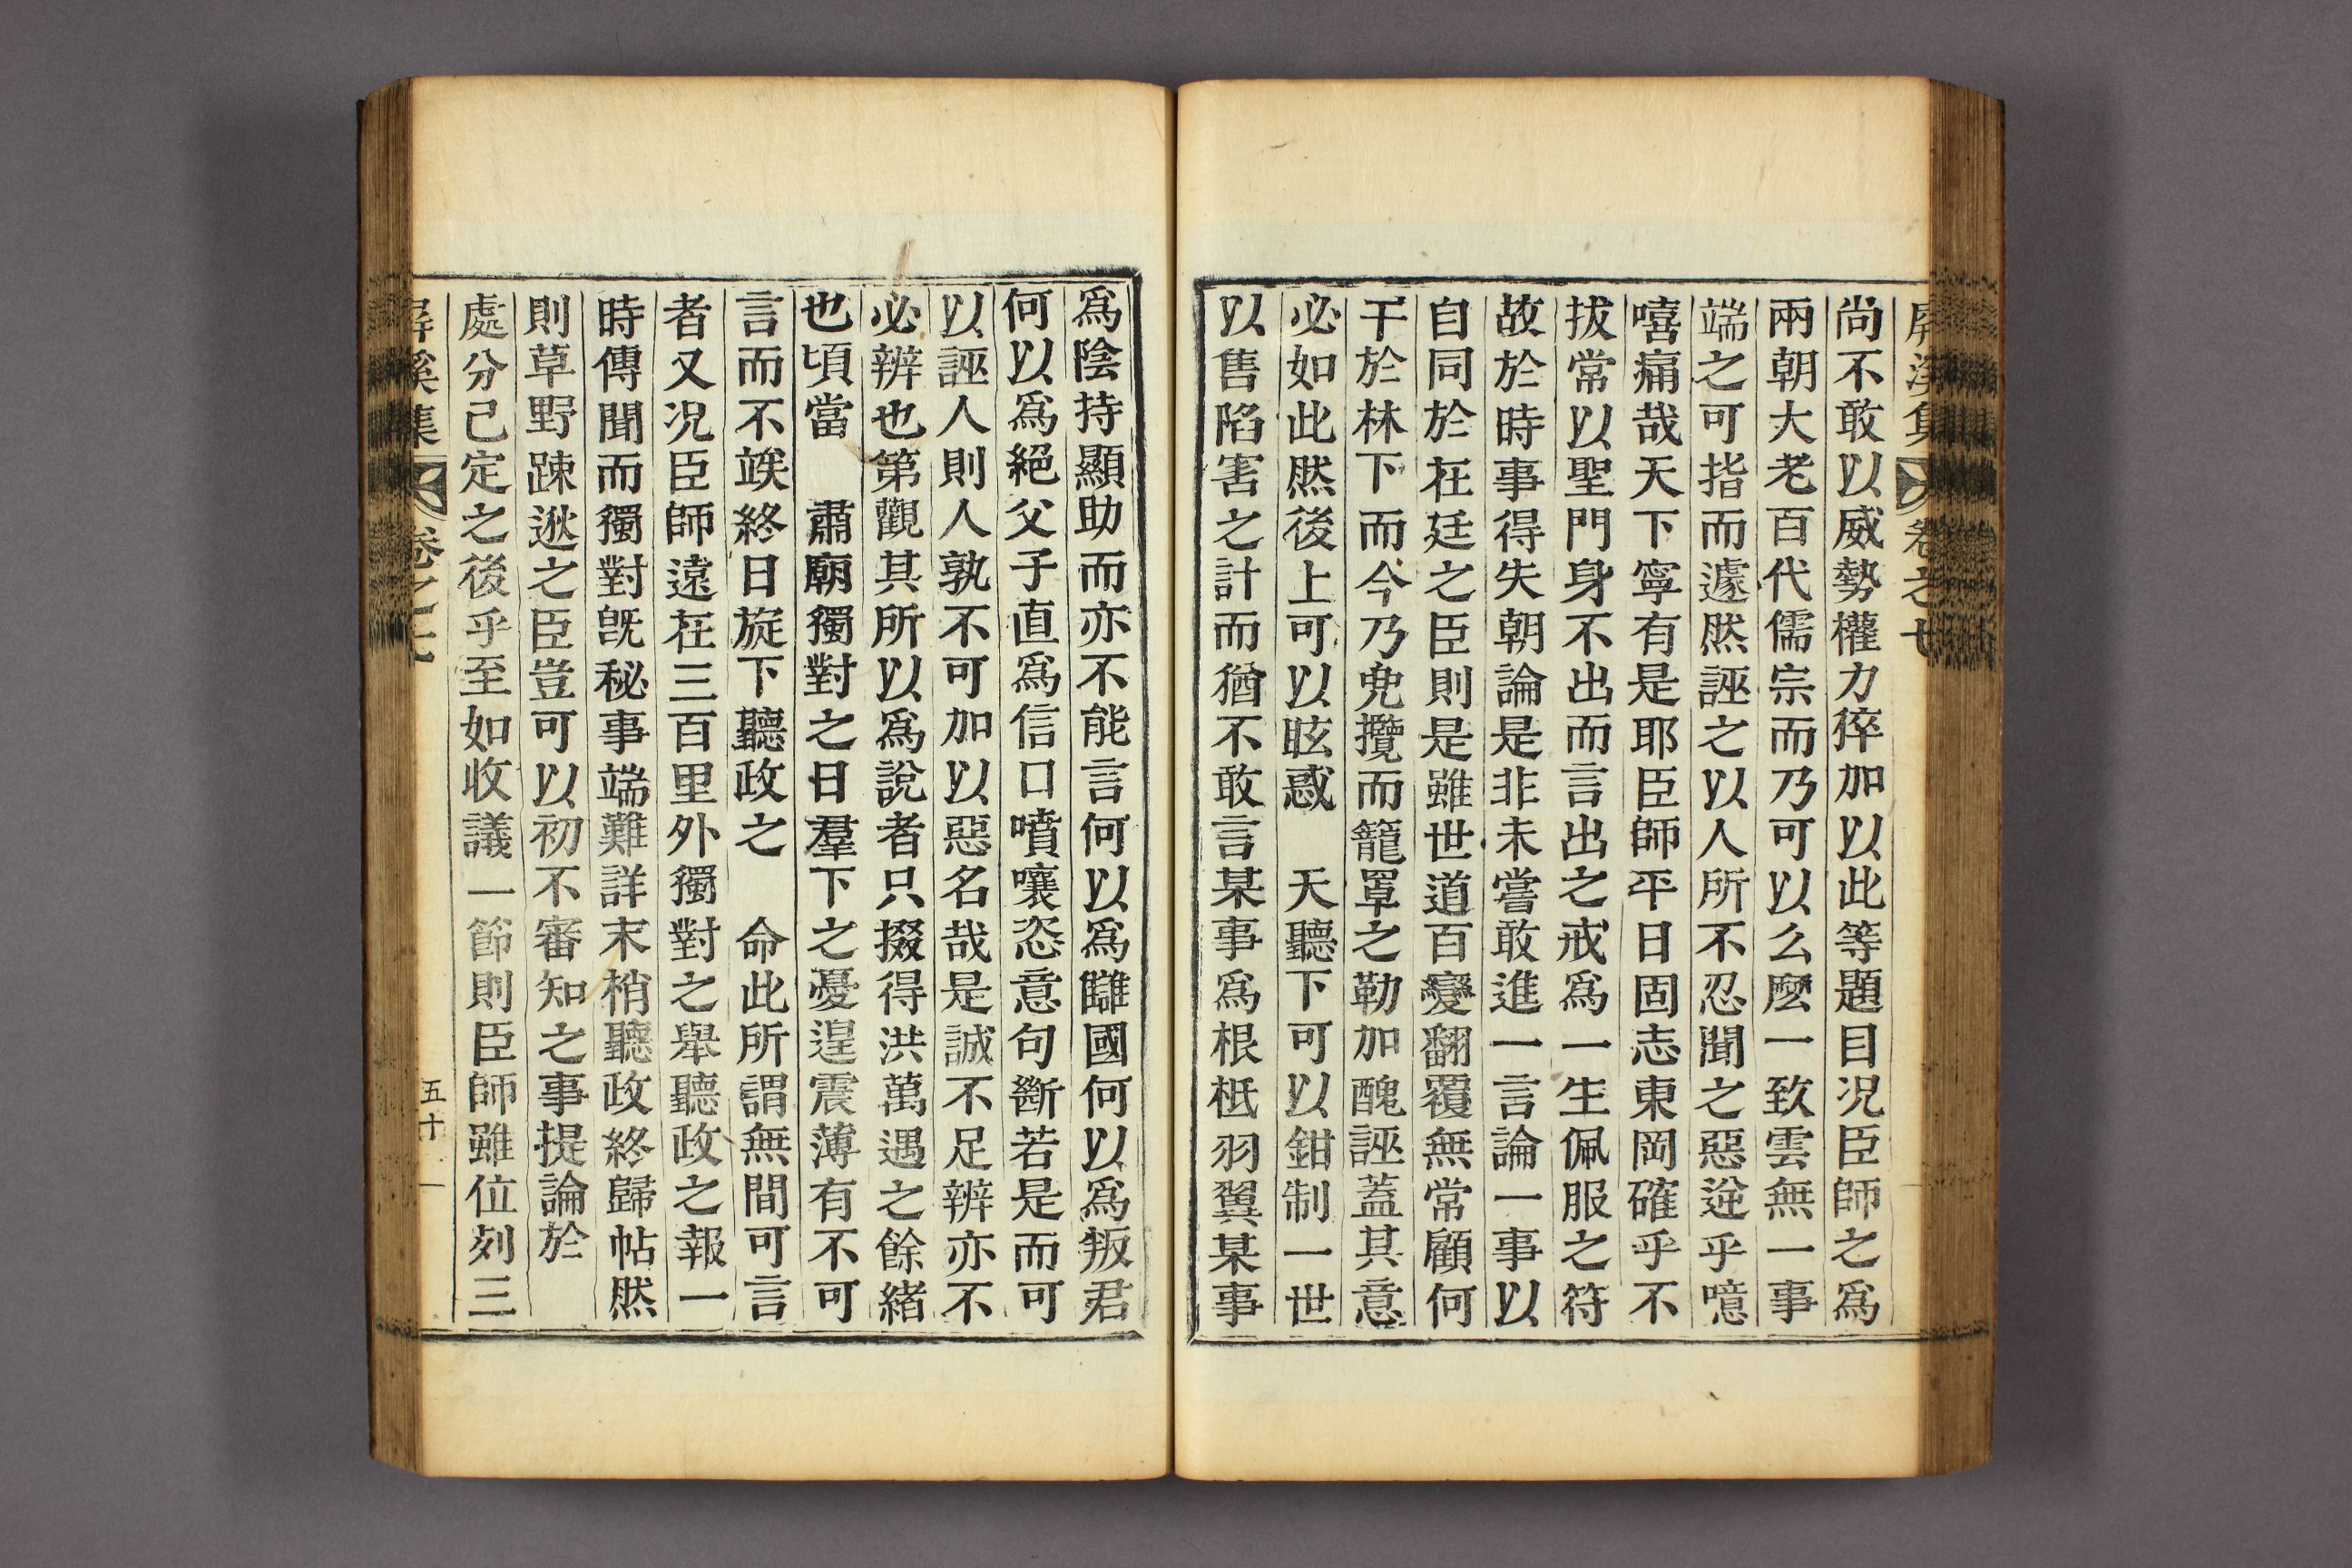 屏溪集 卷之七
尚不敢以威勢權力猝加以此等題目况臣師之爲
兩朝大老百代儒宗而乃可以么麽一致雲無一事
端之可指而遽然誣之以人所不忍聞之惡逆乎噫
嘻痛哉天下寧有是耶臣師平日固志東岡確乎不
拔常以聖門身不出而言出之戒爲一生佩服之符
故於時事得失朝論是非未嘗敢進一言論一事以
自同於在廷之臣則是雖世道百變翻覆無常顧何
干於林下而今乃兜攬而籠罩之勒加醜誣蓋其意
必如此然後上可以眩惑 天聽下可以鉗制一世
以售陷害之計而猶不敢言某事爲根柢羽翼某事
爲陰持顯助而亦不能言何以爲讎國何以爲叛君
何以爲絕父子直爲信口噴嚷恣意句斷若是而可
以誣人則人孰不可加以惡名哉是誠不足辨亦不
必辨也第觀其所以爲說者只掇得洪萬遇之餘緖
也頃當 肅廟獨對之日羣下之憂遑震薄有不可
言而不竢終日旋下聽政之 命此所謂無間可言
者又况臣師遠在三百里外獨對之舉聽政之報一
時傳聞而獨對旣秘事端難詳末梢聽政終歸帖然
則草野踈逖之臣豈可以初不審知之事提論於
處分已定之後乎至如收議一節則臣師雖位列三
屏溪集 卷之七 五十一